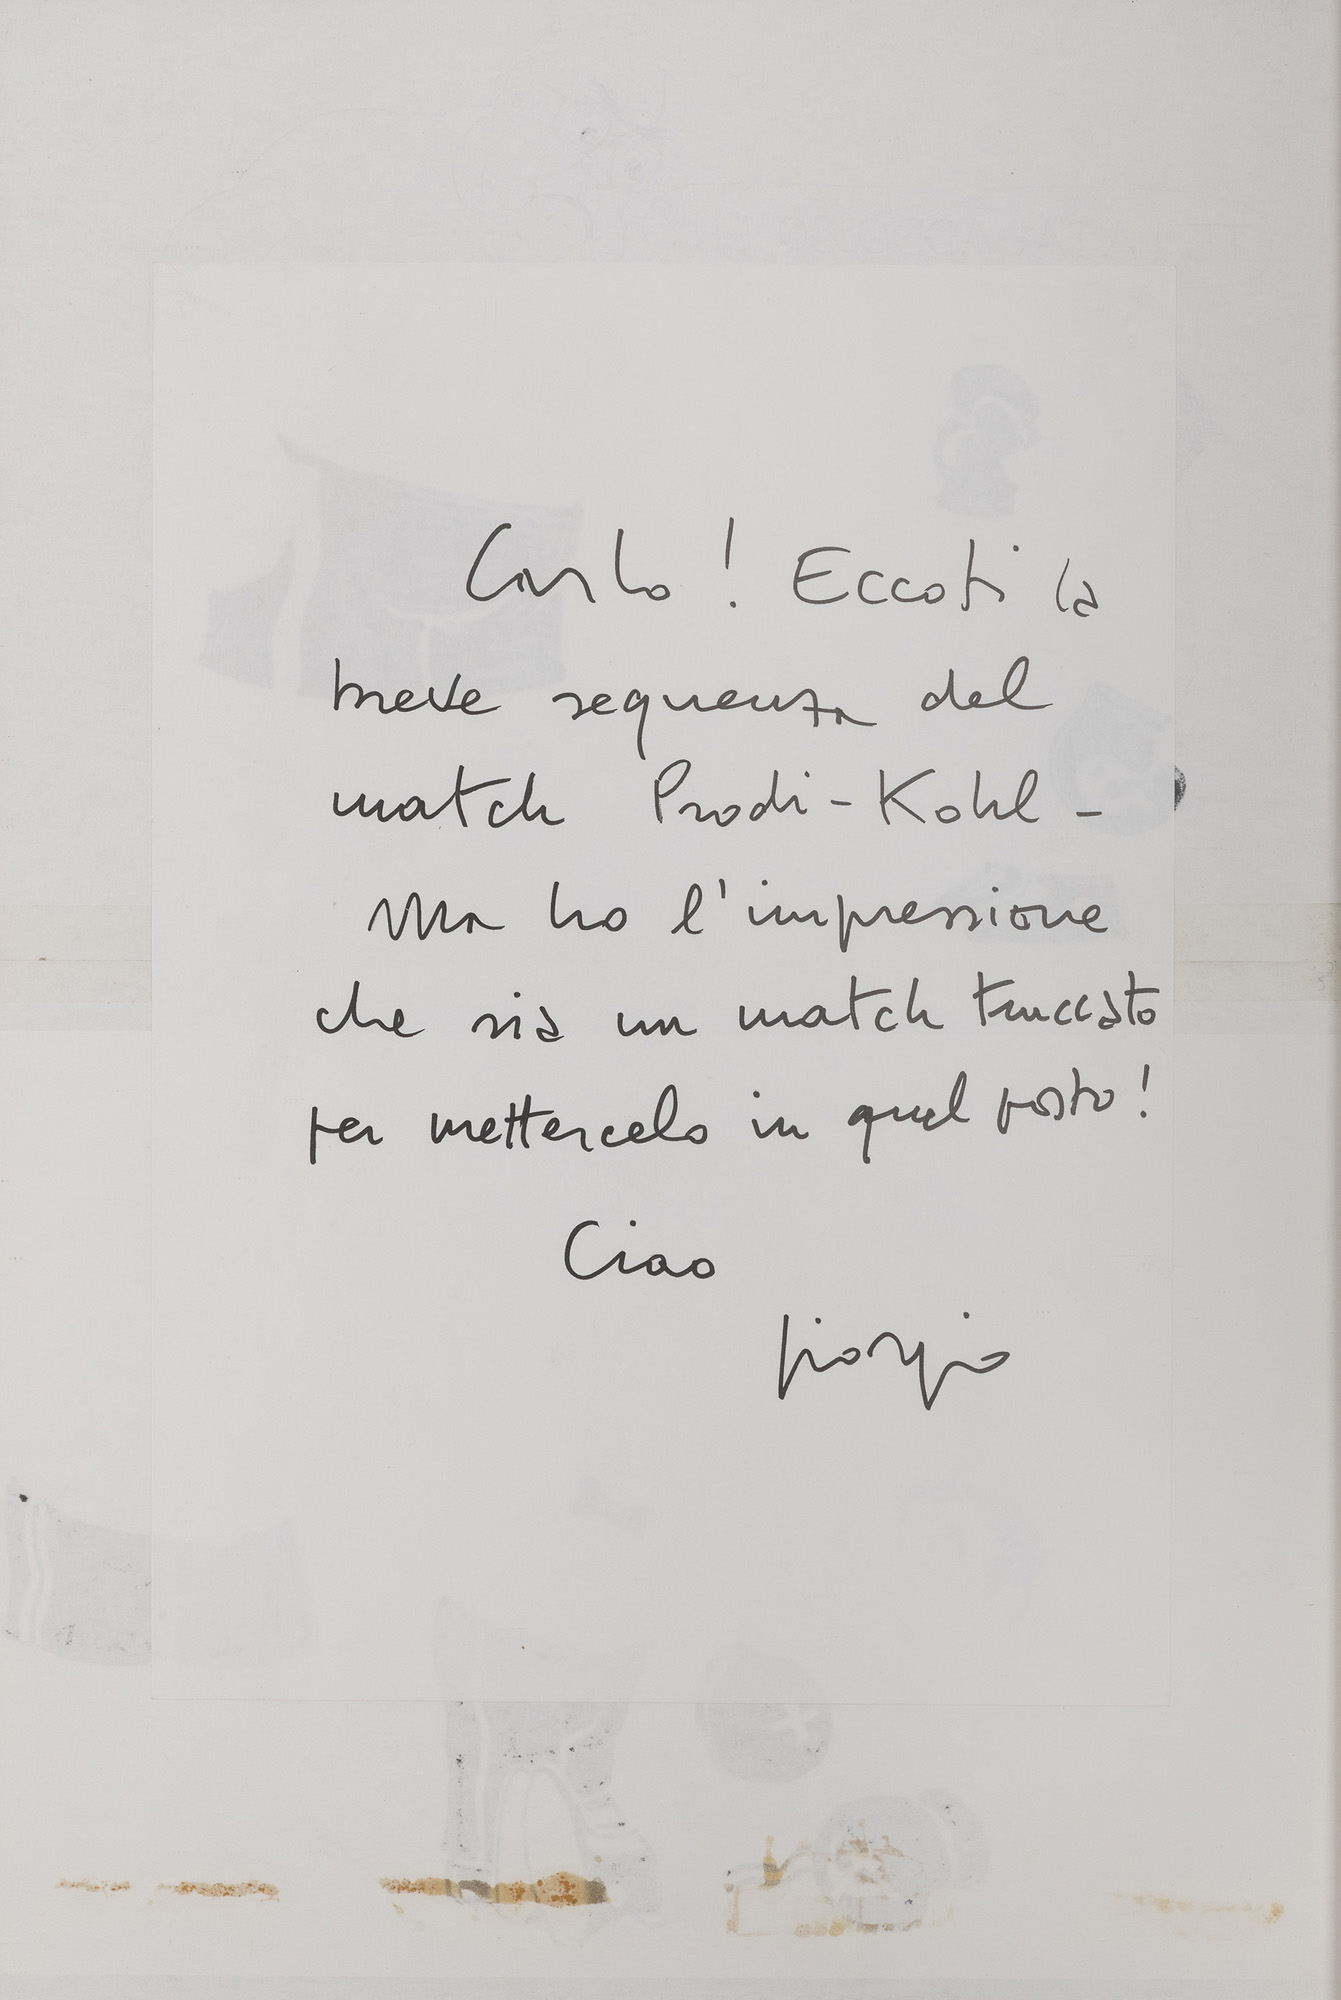 Carlo! Eccoti la
breve sequenza del
match Prodi-Kohl-
Ma ho l'impressione
che sia un match truccato
per mettercelo in quel posto!
Ciao
Giorgio